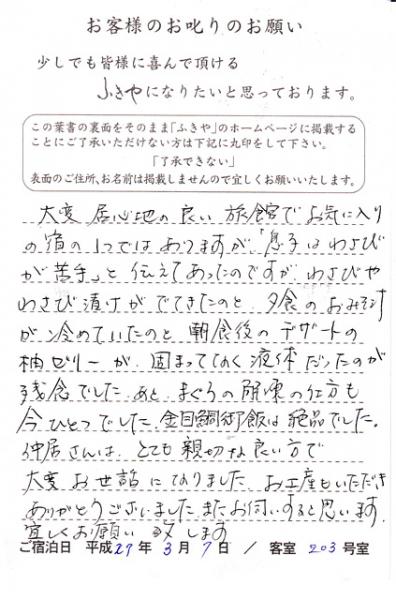 お客様のお叱りのお願い
少しでも皆様に喜んで頂ける
ふきやになりたいと思っております。
この葉書の裏面をそのまま「ふきや」のホームページに掲載する
ことにご了承いただけない方は下記に丸印をして下さい。
「了承できない」
表面のご住所、お名前は掲載しませんので宜しくお願いいたします。
大変 居心地の良い 旅館で お気に入り
の宿の1つではありますが、「息子はわさび
が苦手」と 伝えてあったのですが、わさびや
わさび漬けがでてきたのと、夕食のおみそ汁
が冷めていたのと 朝食後の デザートの
柚ゼリーが、固まってなく液体だったのが
残念でした。あと、まぐろの解凍の仕方も
今ひとつでした。金目鯛御飯は絶品でした。
仲居さんは、とても親切な良い方で
大変 お世話になりました。お土産もいただき
ありがとうございました。またお伺いすると思います。
宜しくお願い 致します
ご宿泊日 平成27年 3月 7日 / 客室 203号室